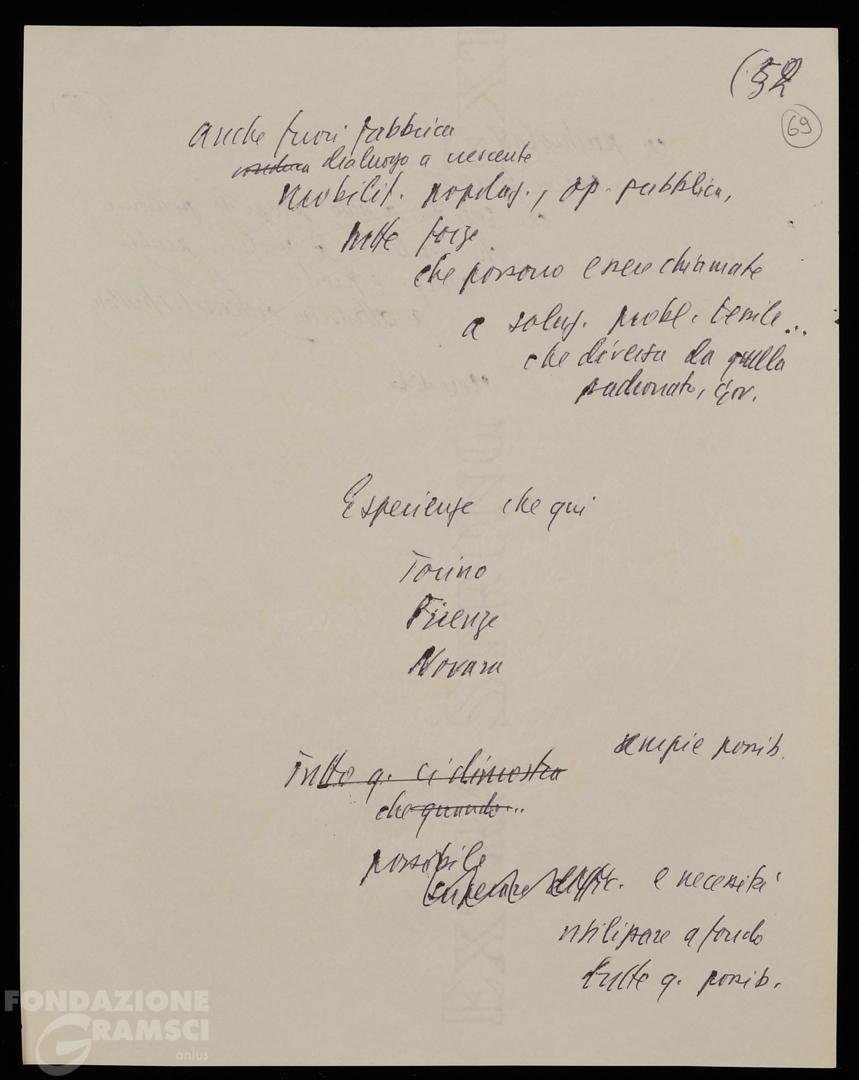 (52
69
Anche fuori fabbrica
dialogo a crescente
mobilit. popolaz., op. pubblica,
tutte forze
che possono essere chiamate
a soluz. probl. tessile...
che diversa da quella
padronato, gov.
Esperienze che qui
Torino
Firenze
Novara
ampie possib.
Tutto q. ci dimostra
che quando...
possibile
superare diffic. e necessità
utilizzare a fondo
tutte q. possib.
FONDAZIONE
GRAMSCI
onlus